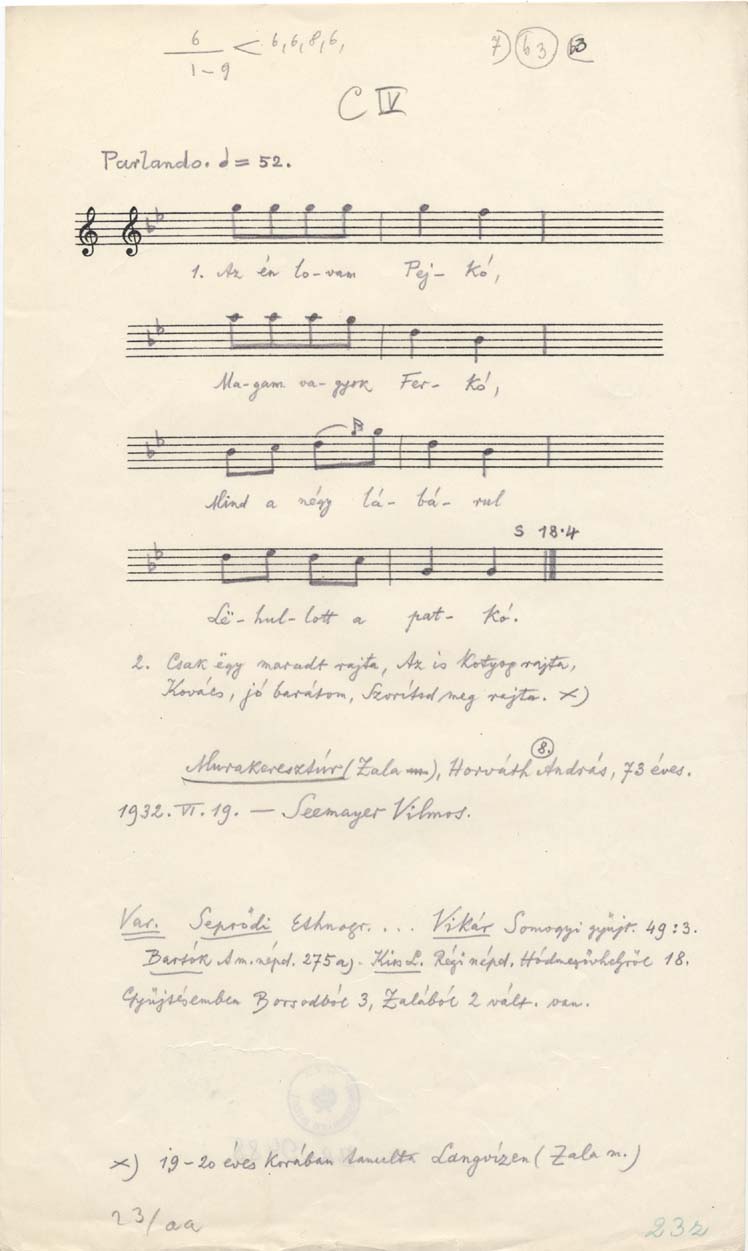 6/1-9 < 6, 6, 8, 6,
7) b3 b3
C IV
Parlando. = 52.
1. Az én lo-vam Pej- kó,
Ma-gam va-gyok Fer- kó,
Mind a négy lá- bá- rul
S 18·4
Lë-hul-lott a pat- kó.
2. Csak ëgy maradt rajta, Az is kotyog rajta,
Kovács, jó barátom, Szorítsd meg rajta. x)
8.
Murakeresztúr (Zala m), Horváth András, 73 éves.
1932. VI. 19. — Seemayer Vilmos.
Var. Seprődi Ethnogr. ... Vikár Somogyi gyüjt. 49:3.
Bartók A m. népd. 275 a). Kiss L. Régi népd. Hódmezővhelyről 18.
Gyüjtésemben Borsodból 3, Zalából 2 vált. van.
x) 19-20 éves korában tanulta Langvízen (Zala m.)
23/aa
232